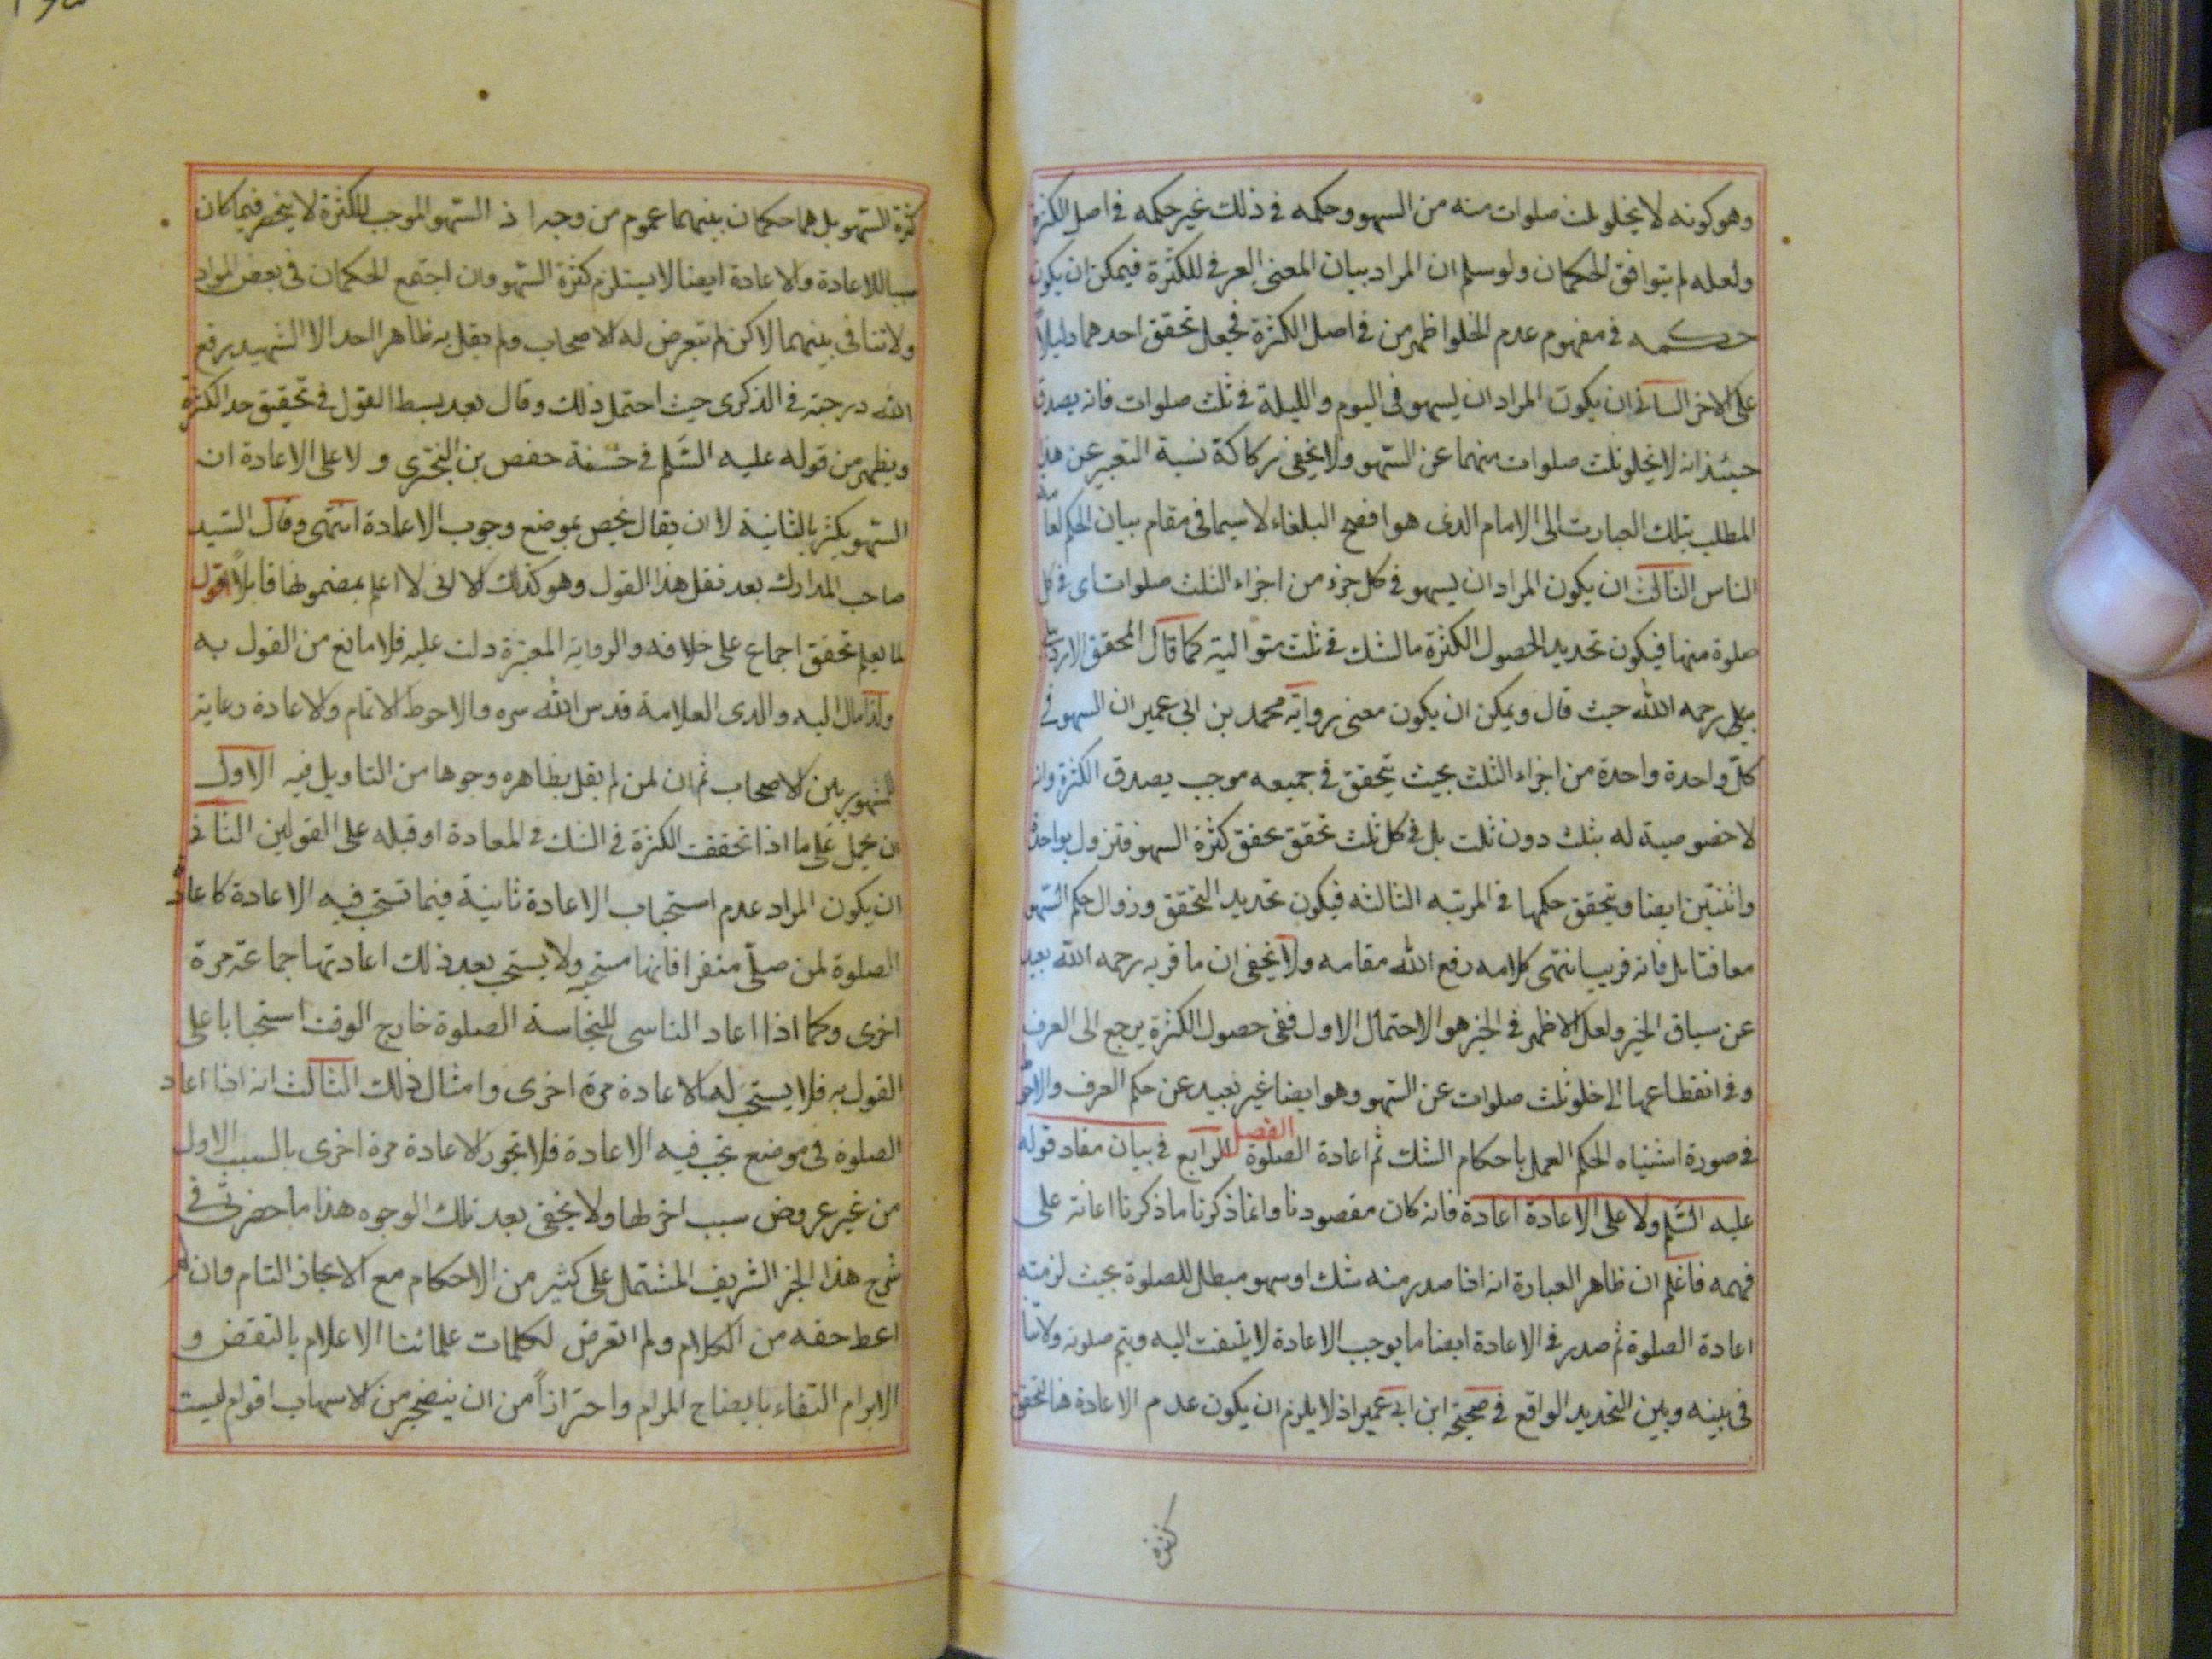 وهو كونه لا يخلو ثلث صلوات منه من السهو وحكمه فى ذلك غير حكمه فى اصل الكثرة
ولعله لم يتوافق الحكمان ولو سلم ان المراد بيان المعنى العرفى للكثرة فيمكن ان يكون
حكمه فى مفهوم عدم الخلو اظهر من فى اصل الكثرة فجعل تحقق احدهما دليلاً
على الاخر الثانى ان يكون المراد ان يسهو فى اليوم والليلة فى ثلث صلوات فانه يصدق
حينئذ انه لا يخلو ثلث صلوات منهما عن السهو ولا يخفى ركاكة نسبة التعبير عن هذا
المطلب بتلك العبارت الى الامام الذى هو افصح البلغاء لا سيما فى مقام بيان الحكم لعامة
الناس الثالث ان يكون المراد ان يسهو فى كل جزء من اجزاء الثلث صلوات اى فى كل
صلوة منها فيكون تحديد الحصول الكثرة مالشك فى ثلث متوالية كما قال المحقق الاردبيلى
رحمه الله حيث قال ويمكن ان يكون معنى رواية محمد بن ابى عمير ان السهو فى
كل واحدة واحدة من اجزاء الثلث بحيث يتحقق فى جميعه موجب يصدق الكثرة وانه
لا خصوصية له بثلث دون ثلث بل فى كل ثلث تحقق تحقق كثرة السهو فتزول بواحدة
واثنتين ايضا ويتحقق حكمها فى المرتبه الثالثه فيكون تحديد التحقق وزوال حكم السهو
معا فتامل فانه قريب انتهى كلامه رفع الله مقامه ولا يخفى ان ما قربه رحمه الله بعيد
عن سياق الخبر ولعل الاظهر فى الخبر هو الاحتمال الاول ففى حصول الكثرة يرجع الى العرف
وفى انقطاعها الى خلو ثلث صلوات عن السهو وهو ايضا غير بعيد عن حكم العرف والاحوط
فى صورة اشتباه الحكم العمل باحكام الشك ثم اعادة الصلوة الفصل الرابع فى بيان مفاد قوله
عليه السلم ولا على الاعادة اعادة فانه كان مقصودنا وانما ذكرنا ما ذكرنا اعانة على
فهمه فاعلم ان ظاهر العبارة انه اذا صدر منه شك او سهو مبطل للصلوة بحيث لزمته
اعادة الصلوة ثم صدر فى الاعادة ايضا ما يوجب الاعادة لا يلتفت اليه ويتم صلوته ولا تنا
فى بينه وبين التحديد الواقع فى صحيحة ابن ابى عمير اذ لا يلزم ان يكون عدم الاعادة هنا لتحقق
كثرة
كثرة السهو بل هما حكمان بينهما عموم من وجه اذ السهو الموجب للكثرة لا ينحصر فيما كان
سببا للاعادة والاعادة ايضا لا يستلزم كثرة السهو وان اجتمع الحكمان فى بعض المواد
ولا تنافى بينهما لاكن لم يتعرض له الاصحاب ولم يقل به ظاهرا احد الا الشهيد رفع
الله درجته فى الذكرى حيث احتمل ذلك وقال بعد بسط القول فى تحقيق حد الكثرة
ويظهر من قوله عليه السلم فى حسنة حفص بن البخترى ولا على الاعادة ان
السهو يكثر بالثانية لا ان يقال يخص بموضع وجوب الاعادة انتهى وقال السيد
صاحب المدارك بعد نقل هذا القول وهو كذلك الا انى لا اعلم بمضمونها قايلا اقول
لما يعلم تحقق اجماع على خلافه والرواية المعتبرة دلت عليه فلا مانع من القول به
ولذا مال اليه والدى العلامة قدس الله سره والاحوط الاتمام والاعادة رعاية
للمشهور بين الاصحاب ثم ان لمن لم يقل بظاهره وجوها من التاويل فيه الاول
ان يحمل على ما اذا تحققت الكثرة فى الشك فى المعادة او قبله على القولين الثانى
ان يكون المراد عدم استحباب الاعادة ثانية فيما تستحب فيه الاعادة كاعادة
الصلوة لمن صلى منفردا فانها مستحبة ولا يستحب بعد ذلك اعادتها جماعة مرة
اخرى وكما اذا اعاد الناسى للنجاسة الصلوة خارج الوقت استحبابا على
القول به فلا يستحب له الاعادة مرة اخرى وامثال ذلك الثالث انه اذا اعاد
الصلوة فى موضع تجب فيه الاعادة فلا تجوز الاعادة مرة اخرى بالسبب الاول
من غير عروض سبب اخر لها ولا يخفى بعد تلك الوجوه هذا ما حضرنى فى
شرح هذا الخبر الشريف المشتمل على كثير من الاحكام مع الايجاز التام وان لم
اعط حقه من الكلام ولم اتعرض لكلمات علمائنا الاعلام بالنقض و
الابرام اكتفاء بايضاح المرام واحترازاً من ان ينضجر من الاسهاب اقوام ليست